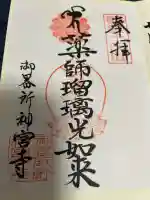 奉拝
薬師瑠璃光如来
御器所神宮寺